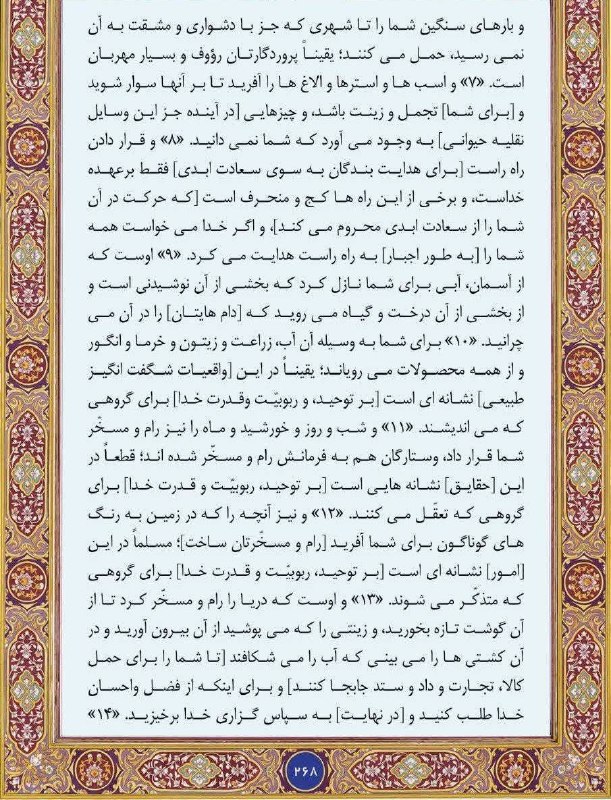 و بارهای سنگین شما را تا شهری که جز با دشواری و مشقت به آن
نمی رسید، حمل می کنند؛ یقیناً پروردگارتان رؤوف و بسیار مهربان
است. «۷» و اسب ها و استرها و الاغ ها را آفرید تا بر آنها سوار شوید
و [برای شما] تجمل و زینت باشد، و چیزهایی [در آینده جز این وسایل
نقلیه حیوانی] به وجود می آورد که شما نمی دانید. «۸» و قرار دادن
راه راست [برای هدایت بندگان به سوی سعادت ابدی] فقط برعهده
خداست، و برخی از این راه ها کج و منحرف است [که حرکت در آن
شما را از سعادت ابدی محروم می کند]، و اگر خدا می خواست همه
شما را [به طور اجبار] به راه راست هدایت می کرد. «۹» اوست که
از آسمان، آبی برای شما نازل کرد که بخشی از آن نوشیدنی است و
از بخشی از آن درخت و گیاه می روید که [دام هایتان] را در آن می
چرانید. «۱۰» برای شما به وسیله آن آب، زراعت و زیتون و خرما و انگور
و از همه محصولات می رویاند؛ یقیناً در این [واقعیات شگفت انگیز
طبیعی] نشانه ای است [بر توحید، و ربوبیّت وقدرت خدا] برای گروهی
که می اندیشند. «۱۱» و شب و روز و خورشید و ماه را نیز رام و مسخّر
شما قرار داد، وستارگان هم به فرمانش رام و مسخّر شده اند؛ قطعاً در
این [حقایق] نشانه هایی است [بر توحید، ربوبیّت و قدرت خدا] برای
گروهی که تعقّل می کنند. «۱۲» و نیز آنچه را که در زمین به رنگ
های گوناگون برای شما آفرید [رام و مسخّرتان ساخت]؛ مسلماً در این
[امور] نشانه ای است [بر توحید، ربوبیّت و قدرت خدا] برای گروهی
که متذکّر می شوند. «۱۳» و اوست که دریا را رام و مسخّر کرد تا از
آن گوشت تازه بخورید، و زینتی را که می پوشید از آن بیرون آورید و در
آن کشتی ها را می بینی که آب را می شکافند [تا شما را برای حمل
کالا، تجارت و داد و ستد جابجا کنند] و برای اینکه از فضل واحسان
خدا طلب کنید و [در نهایت] به سپاس گزاری خدا برخیزید. «۱۴»
۲۶۸